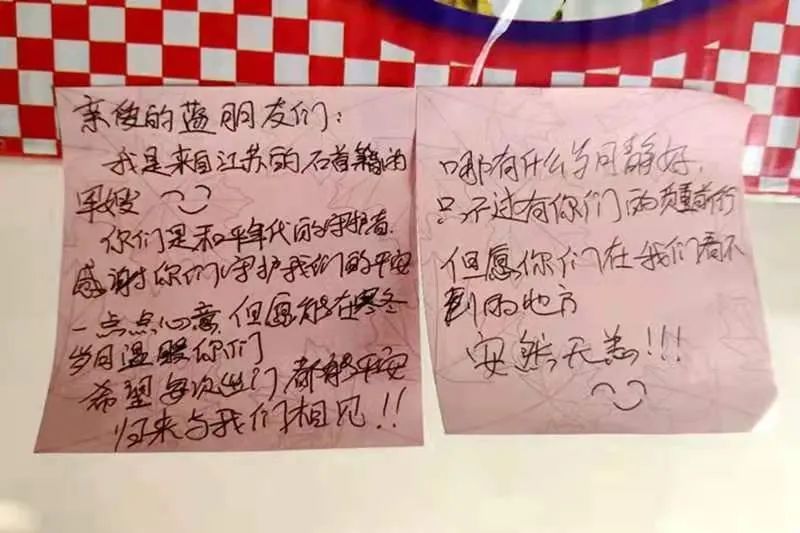 亲爱的蓝朋友们：
我是来自江苏的石首籍的
军嫂
你们是和平年代的守护者
感谢你们守护我们的平安
一点点心意，但愿能在寒冬
岁月温暖你们
希望每次出门都能平安
归来与我们相见！！
哪有什么岁月静好，
只不过有你们的负重前行
但愿你们在我们看不
到的地方
安然无恙！！！